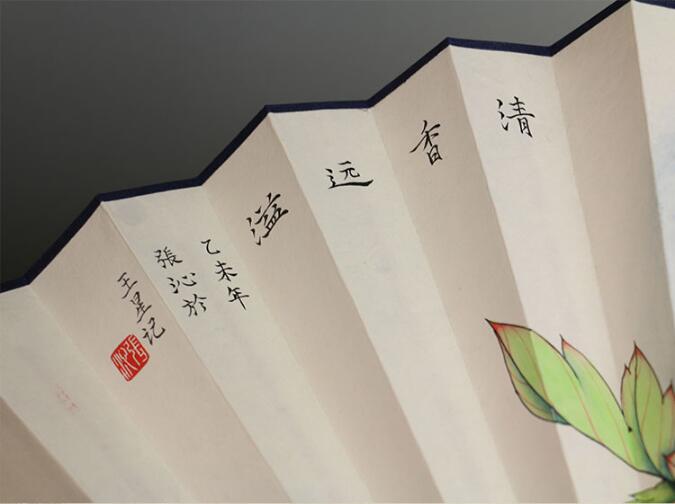 清香远溢
乙未年
張沁於
王星记
張沁